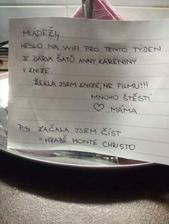 MLÁDEŽI,
HESLO NA WIFI PRO TENTO TÝDEN
JE BARVA ŠATŮ ANNY KARENINY
V KNIZE.
ŘEKLA JSEM KNIZE, NE FILMU!!!
MNOHO ŠTĚSTÍ
♡ MÁMA
P.S. ZAČALA JSEM ČÍST
HRABĚ MONTE CHRISTO